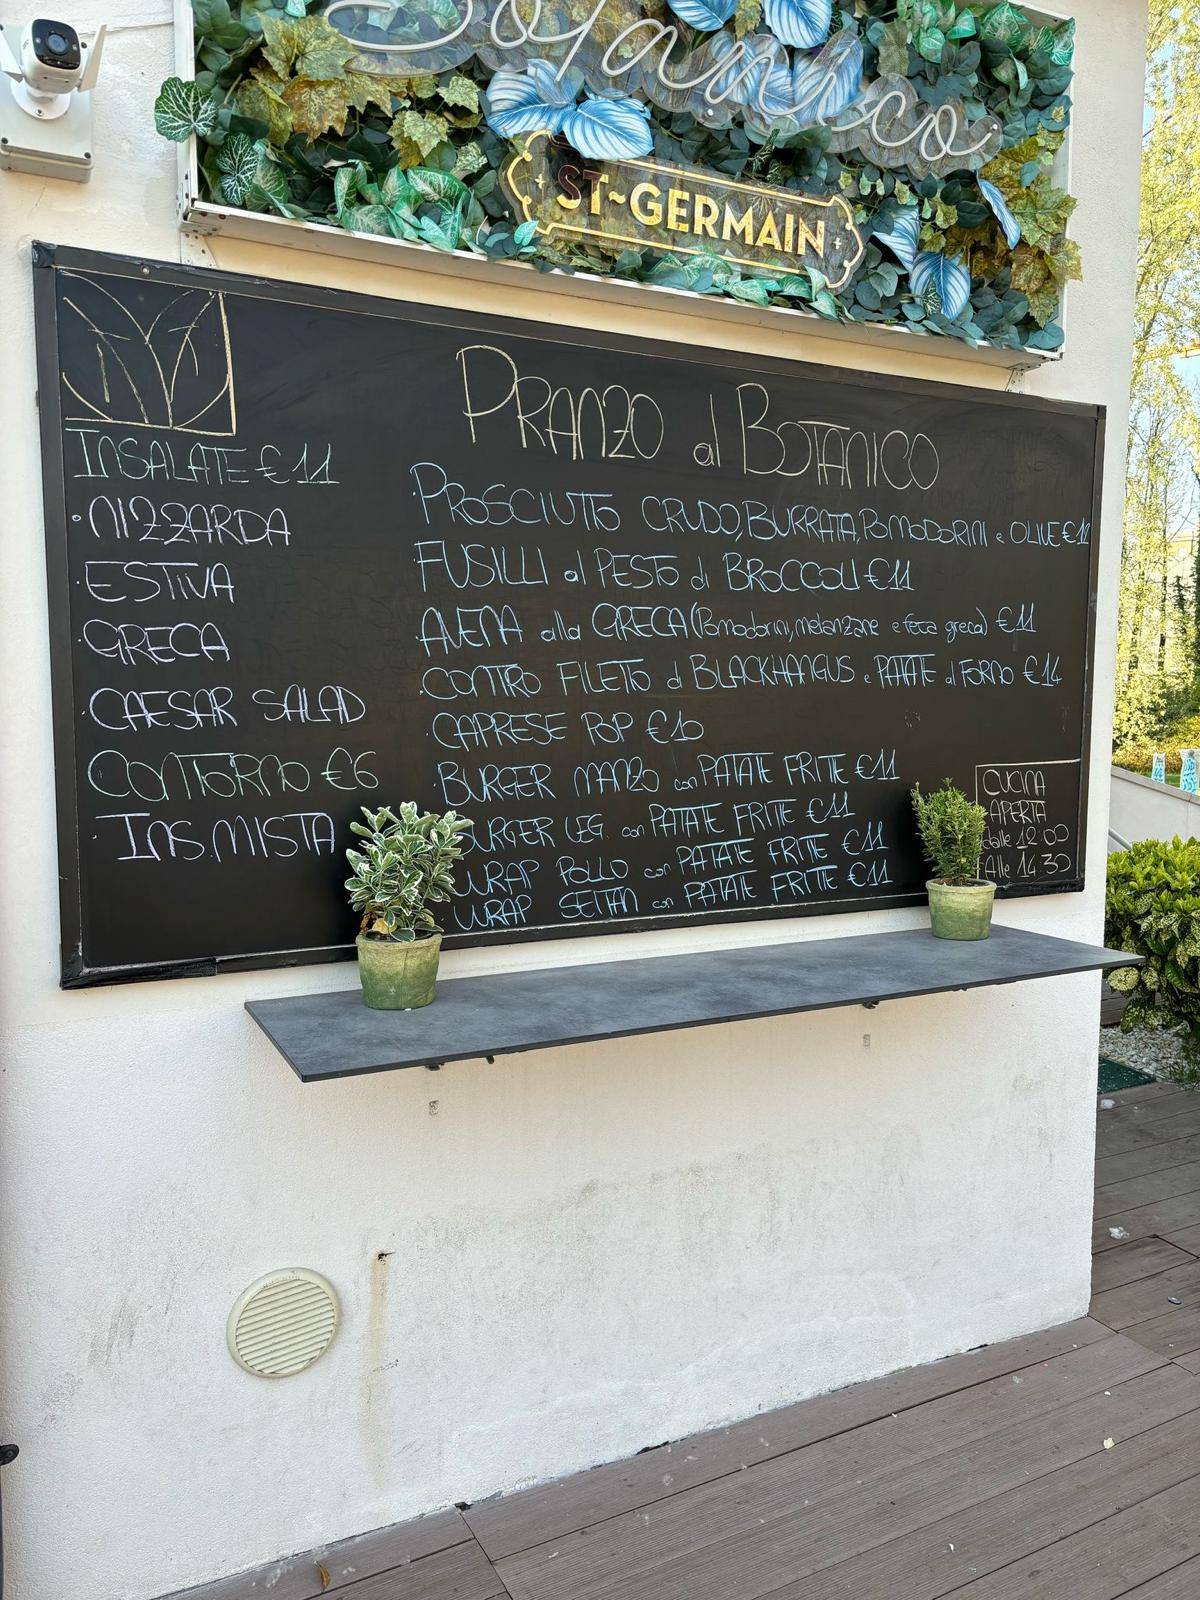 Botanico
ST~GERMAIN
PRANZO al BOTANICO
INSALATE €11
NIZZARDA
ESTIVA
GRECA
CAESAR SALAD
CONTORNO €6
INS.MISTA
PROSCIUTTO CRUDO, BURRATA, POMODORINI e OLIVE €12
FUSILLI al PESTO di BROCCOLI €11
AVENA alla GRECA (Pomodorini, melanzane e feta greca) €11
CONTRO FILETTO di BLACKHANGUS e PATATE al FORNO €14
CAPRESE POP €10
BURGER MANZO con PATATE FRITTE €11
BURGER VEG. con PATATE FRITTE €11
WRAP POLLO con PATATE FRITTE €11
WRAP SEITAN con PATATE FRITTE €11
CUCINA
APERTA
dalle 12:00
Alle 14.30